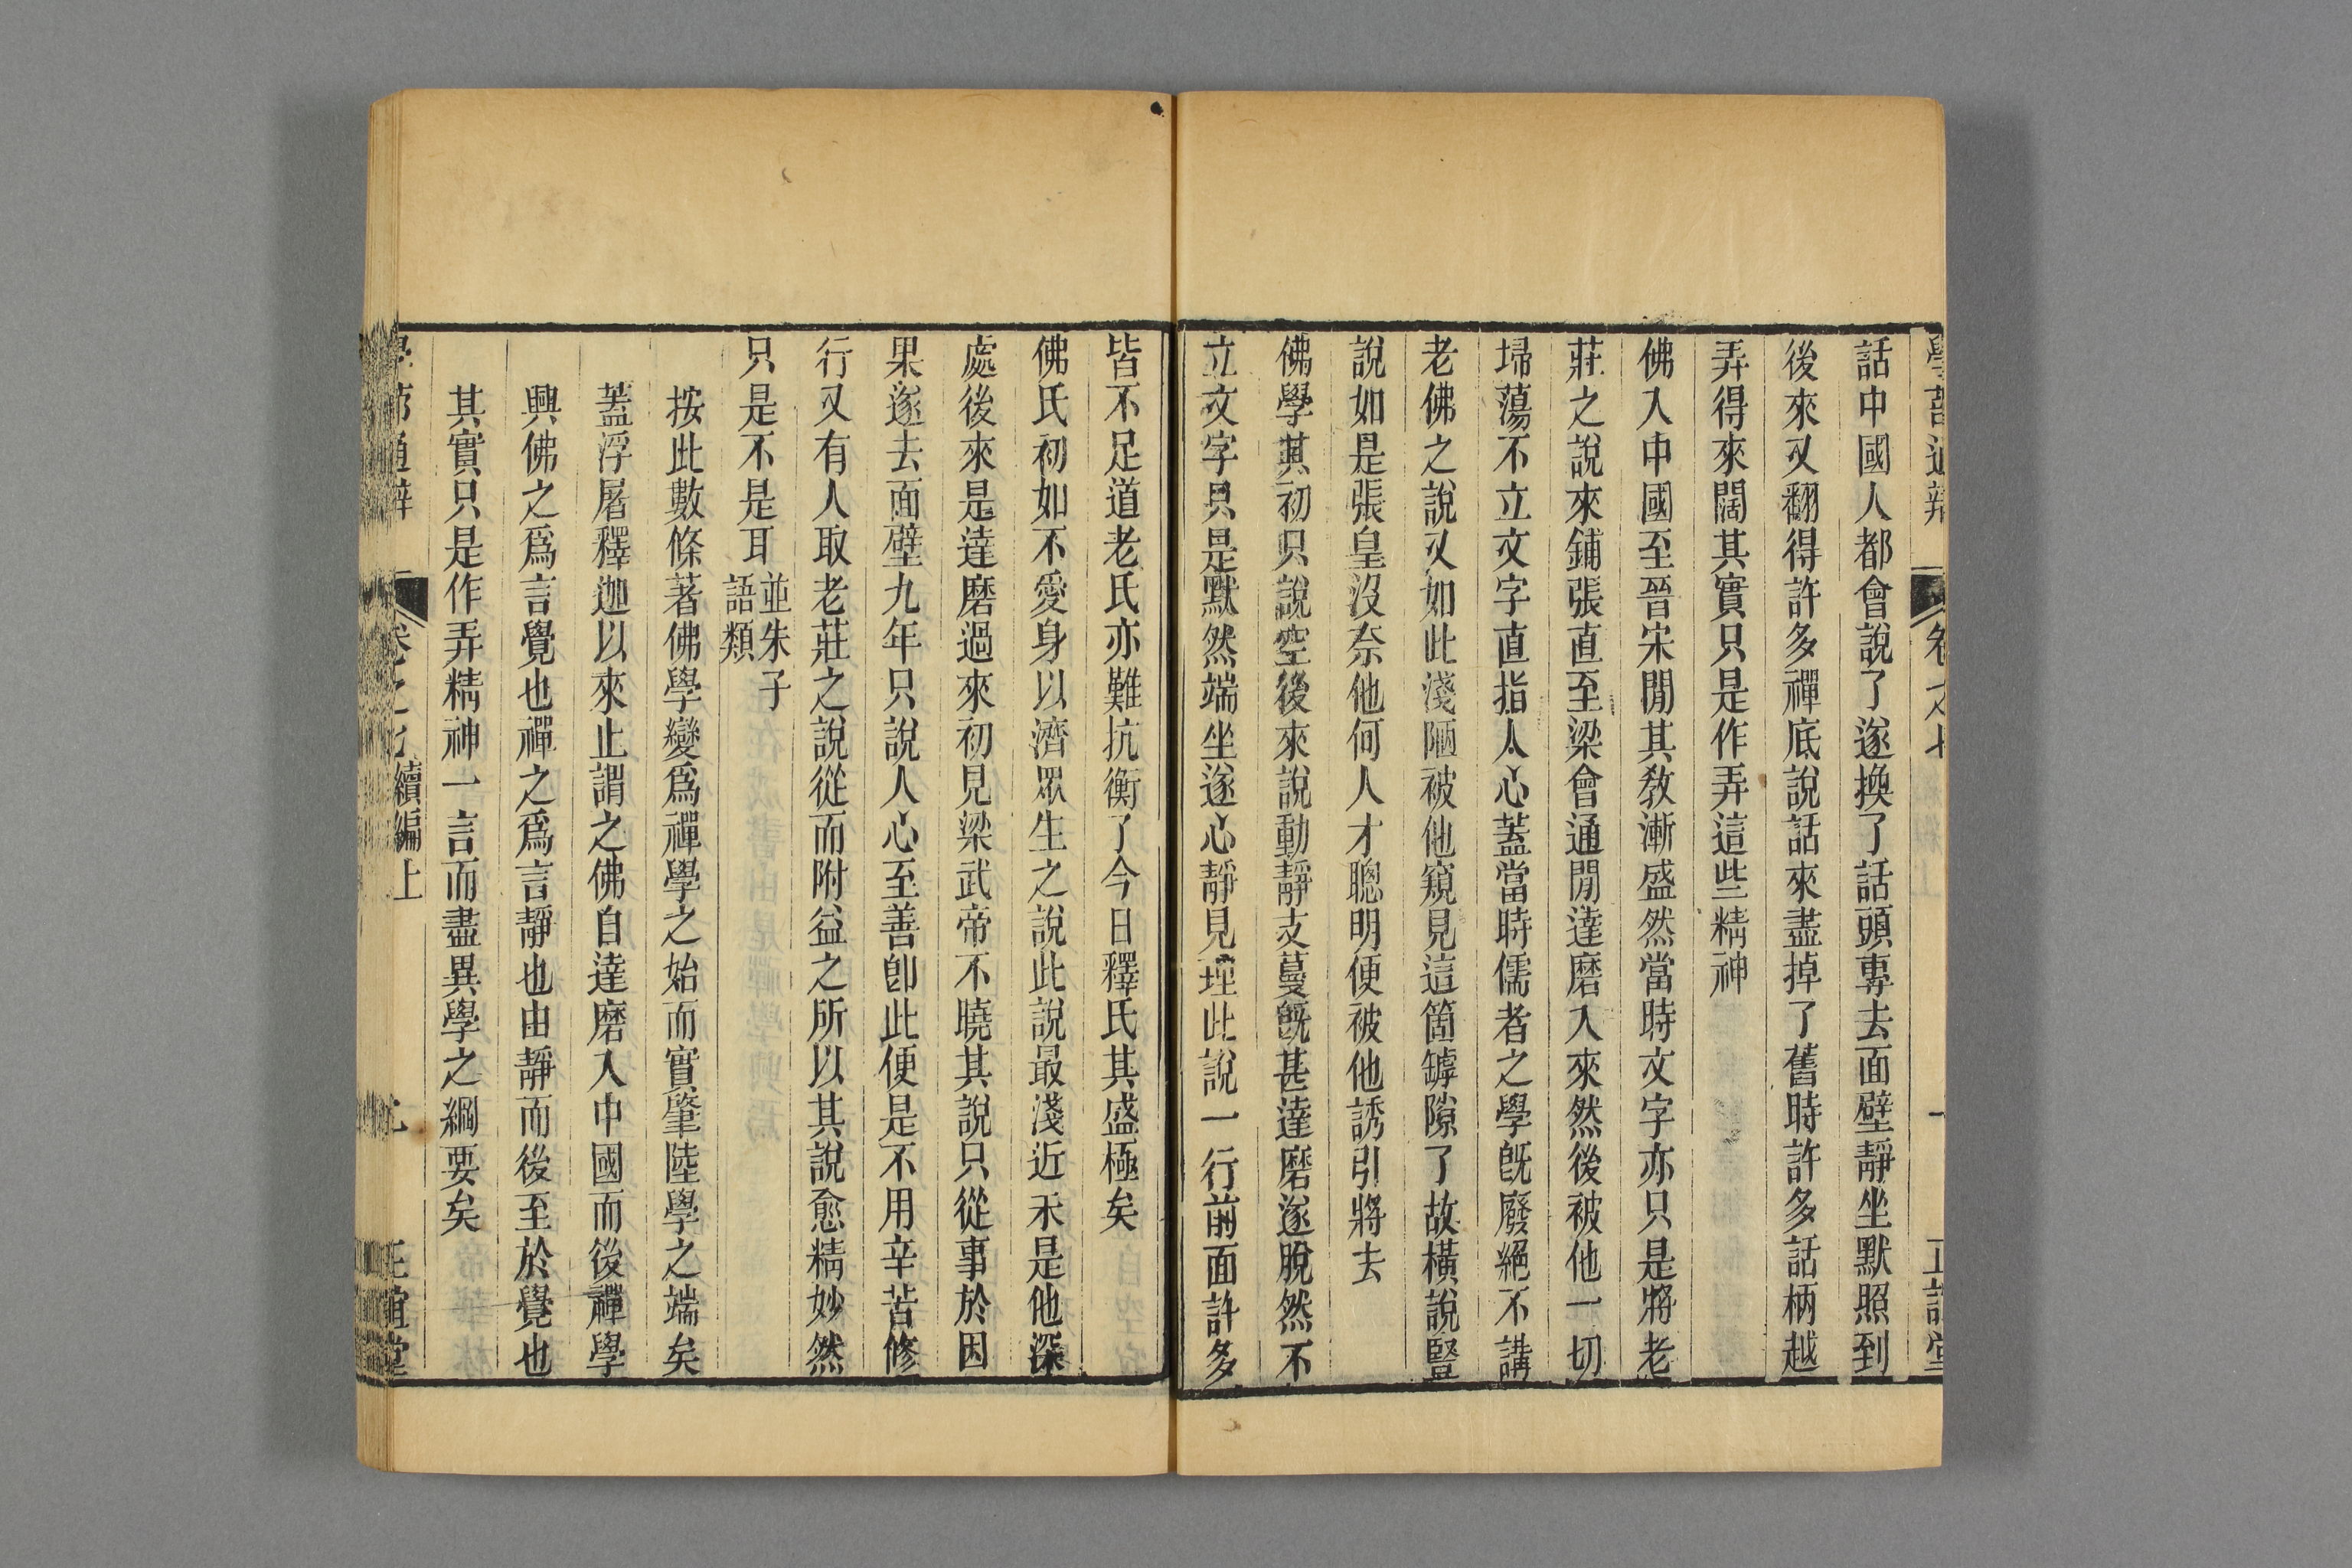 話中國人都會說了遂換了話頭專去面壁靜坐默照到
後來又翻得許多禪底說話來盡掉了舊時許多話柄越
弄得來闊其實只是作弄這些精神
佛入中國至晉宋閒其敎漸盛然當時文字亦只是將老
莊之說來鋪張直至梁會通閒達磨入來然後被他一切
埽蕩不立文字直指人心蓋當時儒者之學旣廢絕不講
老佛之說又如此淺陋被他窺見這箇罅隙了故橫說豎
說如是張皇沒奈他何人才聰明便被他誘引將去
佛學其初只說空後來說動靜支蔓旣甚達磨遂脫然不
立文字只是默然端坐遂心靜見理此說一行前面許多
皆不足道老氏亦難抗衡了今日釋氏其盛極矣
佛氏初如不愛身以濟眾生之說此說最淺近未是他深
處後來是達磨過來初見梁武帝不曉其說只從事於因
果遂去面壁九年只說人心至善卽此便是不用辛苦修
行又有人取老莊之說從而附益之所以其說愈精妙然
只是不是耳並朱子語類
按此數條著佛學變爲禪學之始而實肇陸學之端矣
蓋浮屠釋迦以來止謂之佛自達磨入中國而後禪學
興佛之爲言覺也禪之爲言靜也由靜而後至於覺也
其實只是作弄精神一言而盡異學之綱要矣
續編上